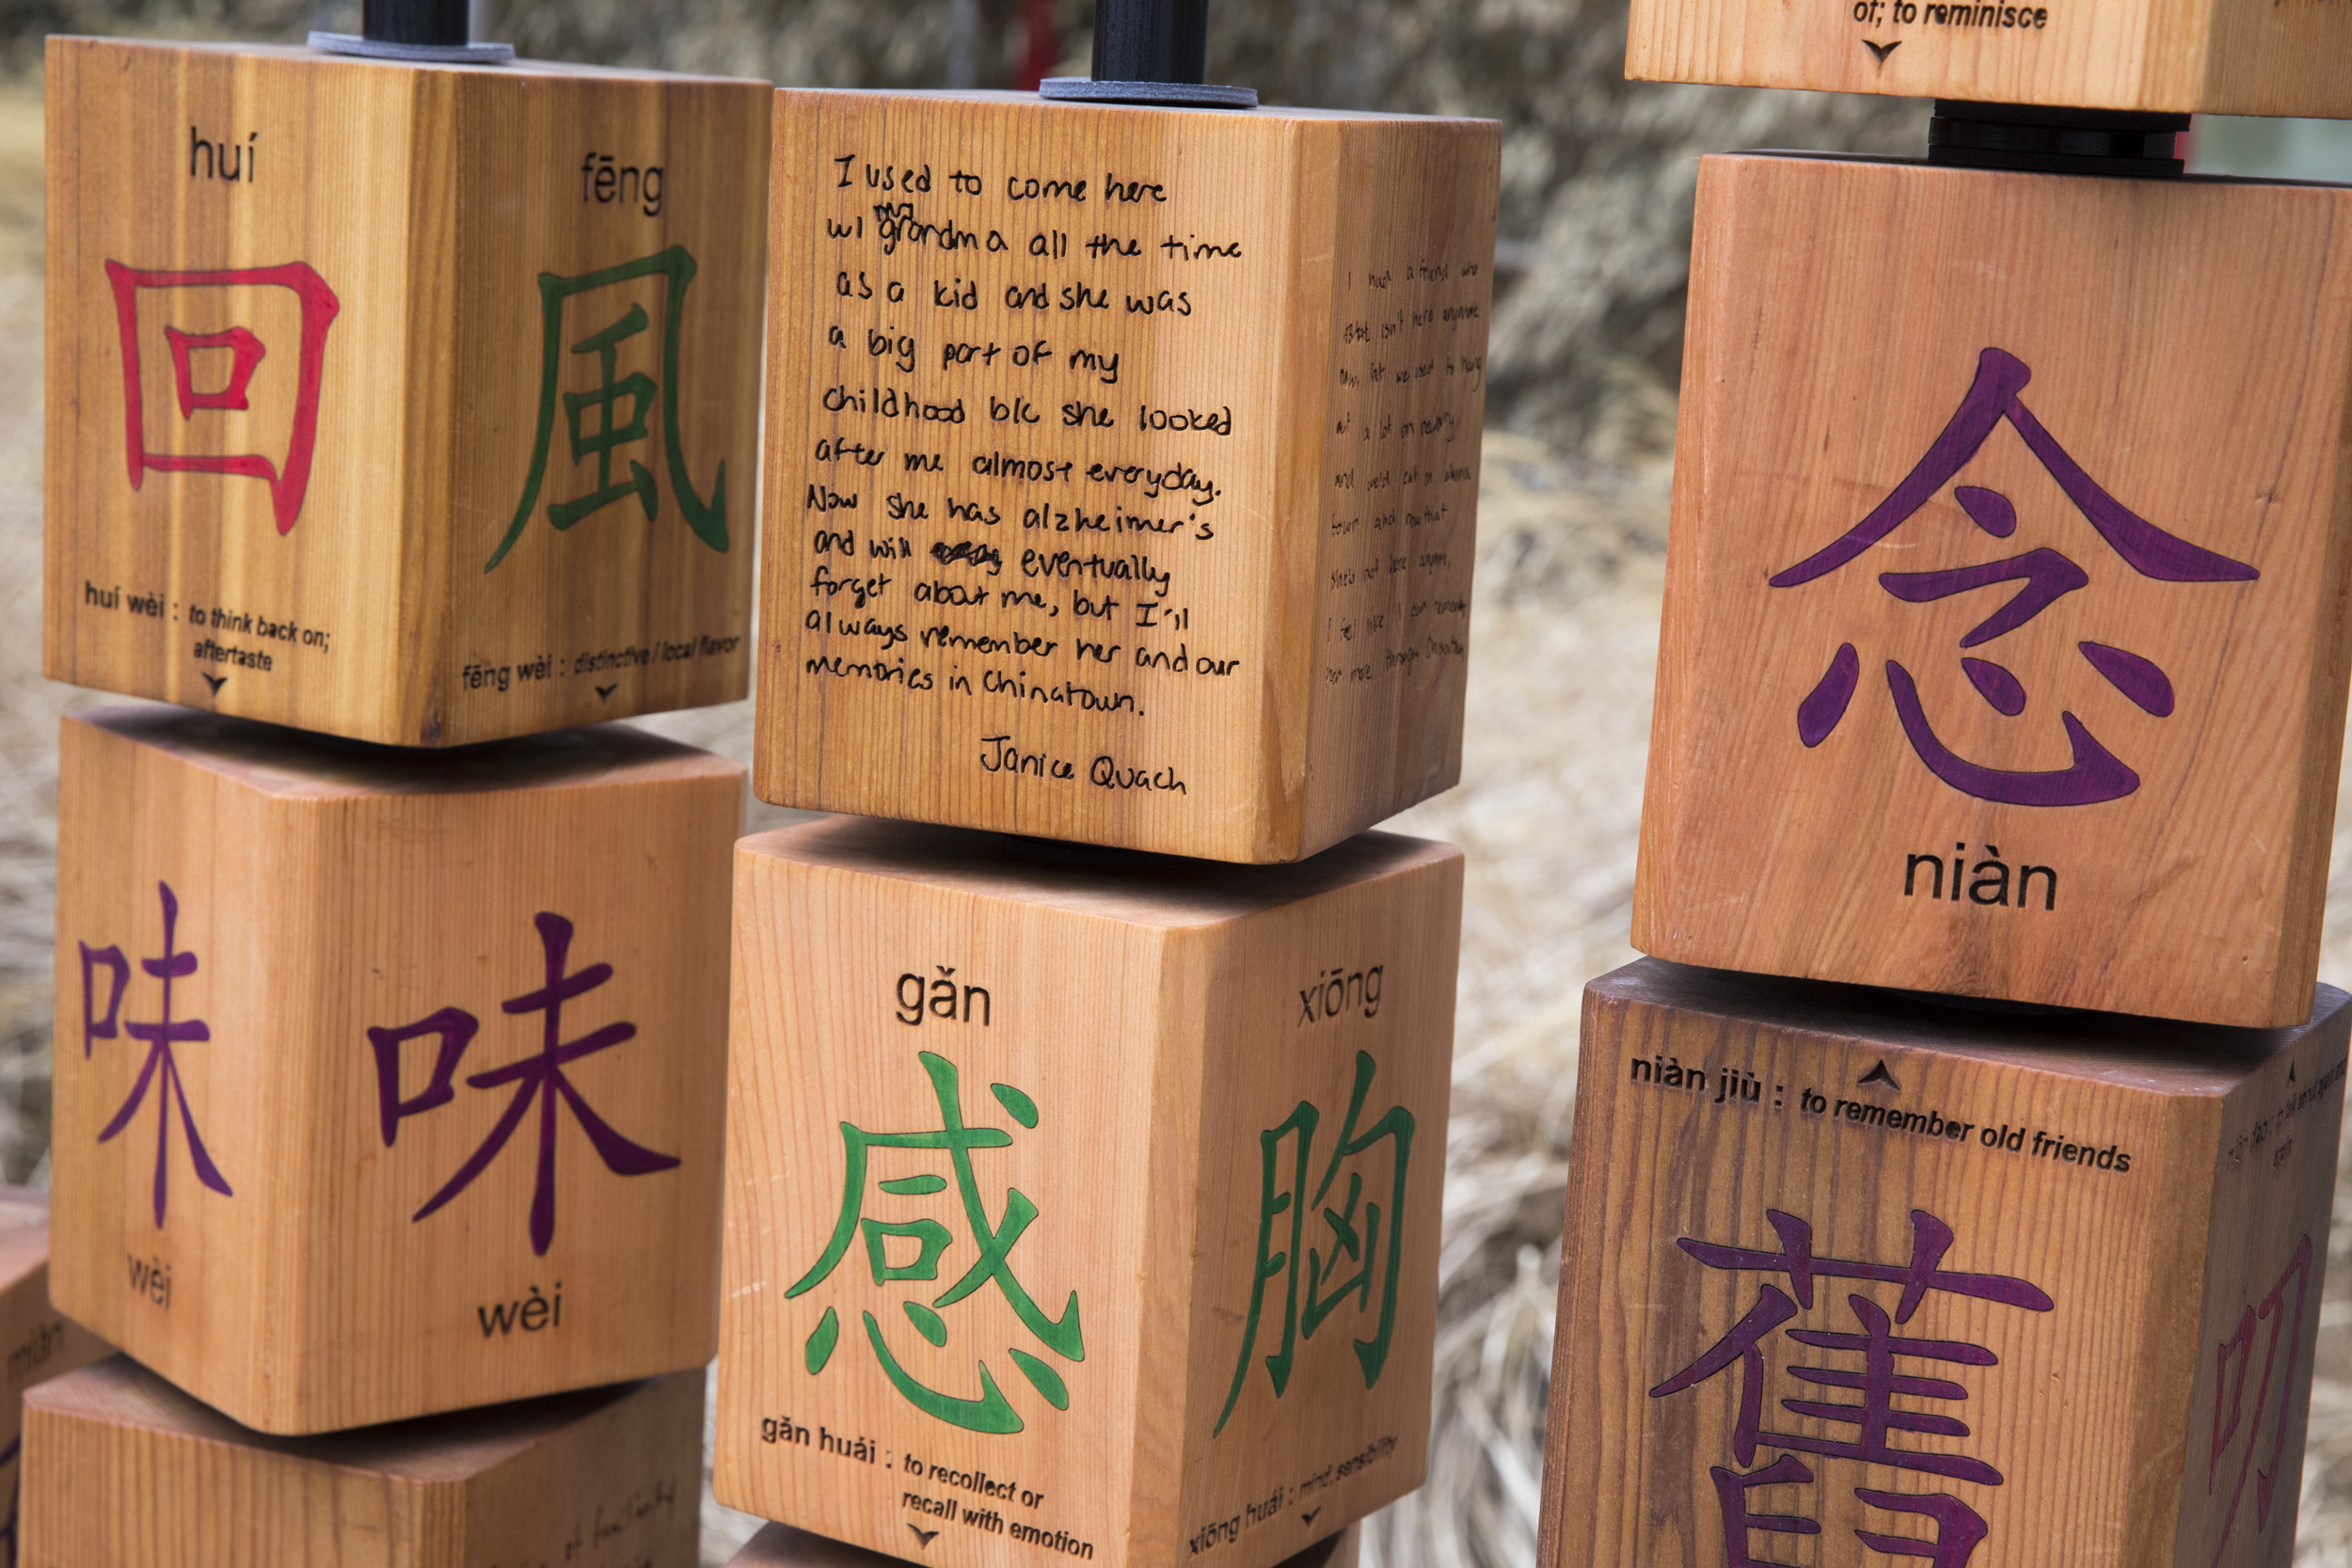 huí
回
huí wèi : to think back on;
aftertaste
fēng
風
fēng wèi : distinctive / local flavor
味
wèi
味
wèi
I used to come here
w/ my grandma all the time
as a kid and she was
a big part of my
childhood b/c she looked
after me almost everyday.
Now she has alzheimer's
and will eventually
forget about me, but I'll
always remember her and our
memories in Chinatown.
Janice Quach
I had a friend who
isn't here anymore
but we used to hang
at a lot on
and we'd eat in
town and now that
she's not here anymore,
I feel like I can remember
her more through
gǎn
感
gǎn huái : to recollect or
recall with emotion
xiōng
胸
xiōng huái : mind, sensibility
of; to reminisce
念
niàn
niàn jiù : to remember old friends
舊
叨